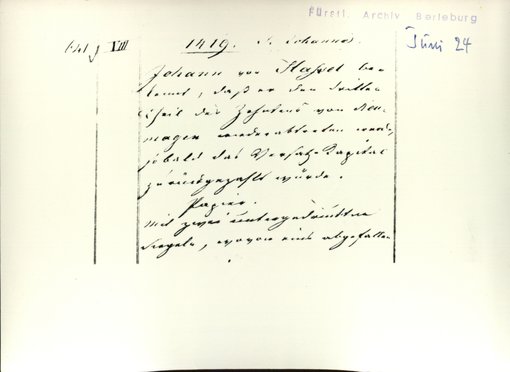 Fürstl. Archiv Berleburg
VIII
1419. S. Johannes.
Juni 24
Johann von Hassel be-
kennt, daß er den dritten
Theil des Zehntens von
magen wiederabtreten werde,
sobald das Versatz-Kapital
zurückgezahlt würde.
Papier.
mit zwei untergedruckten
Siegeln, wovon eins abgefallen